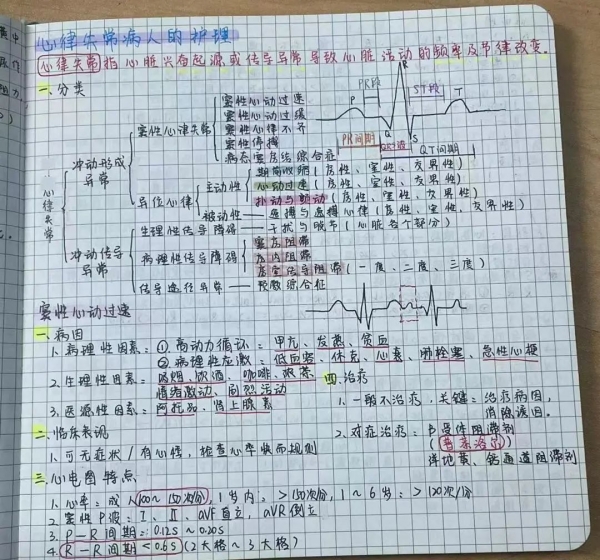 心律失常病人的护理
心律失常指心脏兴奋起源或传导异常导致心脏活动的频率及节律改变。
一、分类
PR段
R
ST段
P
T
Q
S
PR间期
QRS波
QT间期
心律失常
冲动形成异常
窦性心律失常
窦性心动过速
窦性心动过缓
窦性心律不齐
窦性停搏
病态窦房结综合征
异位心律
主动性
期前收缩(房性、室性、交界性)
心动过速(房性、室性、交界性)
扑动与颤动(房性、室性、交界性)
被动性——逸搏与逸搏心律(房性、室性、交界性)
冲动传导异常
生理性传导障碍——干扰与脱节(心脏各个部分)
病理性传导障碍
窦房阻滞
房内阻滞
房室传导阻滞(一度、二度、三度)
传导途径异常——预激综合征
窦性心动过速
一、病因
1.病理性因素:①高动力循环:甲亢、发热、贫血
②病理性应激:低血容、休克、心衰、肺栓塞、急性心梗
2.生理性因素:吸烟、饮酒、咖啡、浓茶
情绪激动、剧烈活动
3.医源性因素:阿托品、肾上腺素
二、临床表现
1.可无症状/有心悸,检查心率快而规则
三、心电图特点
1.心率:成人100~150次/分,1岁内:>150次/分,1~6岁:>120次/分
2.窦性P波:I、II、aVF直立,aVR倒立
3.P-R间期:0.12s~0.20s
4.R-R间期<0.6s(2大格~3大格)
四、治疗
1.一般不治疗,关键:治疗病因,
消除诱因。
2.对症治疗:β受体阻滞剂
(普萘洛尔)
洋地黄、钙通道阻滞剂